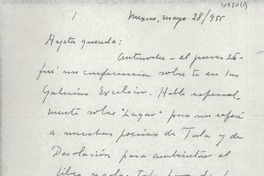 1
México, mayo 28/955
Hejita querida:
Anteuoche - el jueves 26 -
fué mi conferencia sobre ti en las
Galerías Excelsior. Hablé especial-
mente sobre "Lagar" pero me referí
a muchas poesías de Tala y de
Desolación para ambientar el
libro